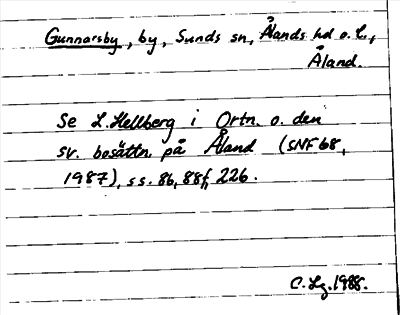 Gunnarsby, by, Sunds sn, Ålands hd o. l.,
Åland.
Se L. Hellberg i Ortn. o. den
sv. bosättn. på Åland (SNF 68,
1987), ss. 86, 88f, 226.
C. Lg. 1988.